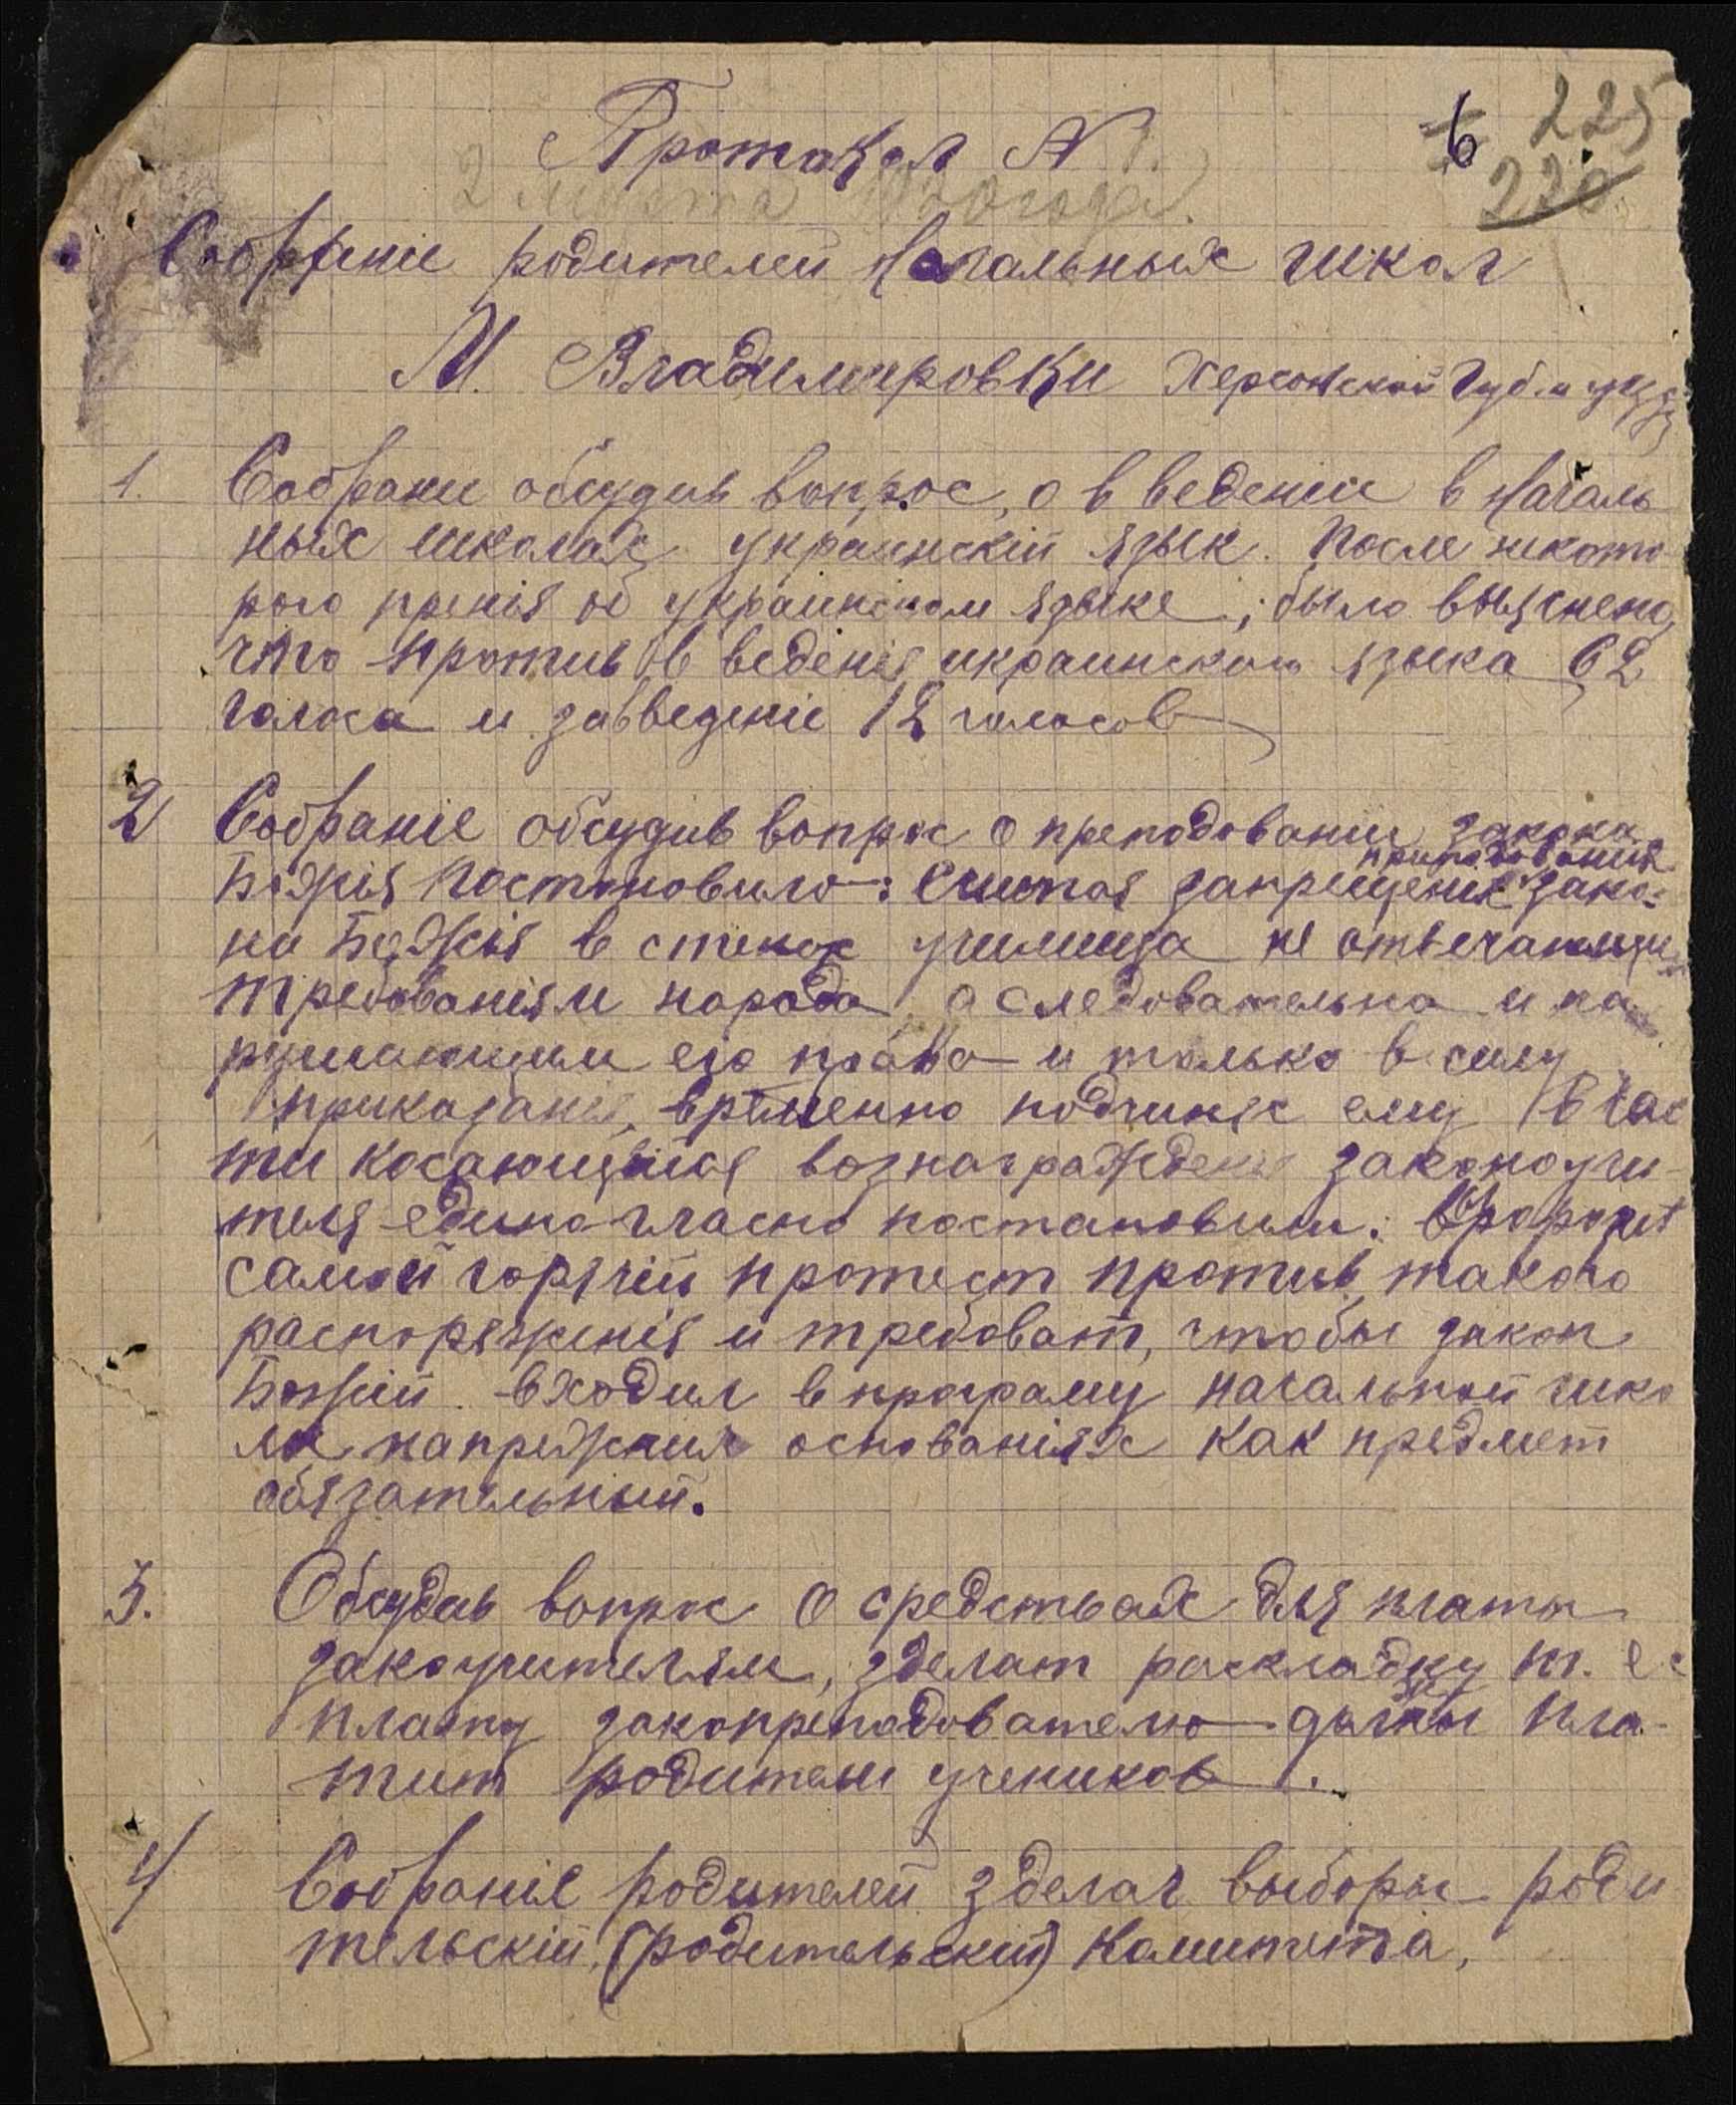 Протокол № 1.
6 225
220
2 Марта 1920 года.
Собрание родителей Начальных школ
М. Владимировки Херсонской Губ. и уезда
1. Собрание обсудив вопрос, о в ведение в Началь
ных школах украинскій язык. После некото
рого пренія об украинском языке; было выяснено,
что против в веденія украинском языка 62
голоса и за введеніе 12 голосов
2 Собраніе обсудив вопрос о преподовании закона
преподованія
Божія Постоновило: Считая запрещеніе зако-
на Божія в стенах училища не отвечающим
требованіям народа, а следовательно и на
рушающим его права и только в силу
приказания, временно подчиняс ему в час
ти косающейся вознаграждения законоучи-
теля единогласно постановили:
самый горячій протест против такого
распоряженія и требоват, чтобы закон
Божій входил в програму начальной шко
лы на прежних основаніях как предмет
обязательный.
3. Обсудив вопрос о средствах для платы
закоучителям, зделат раскладку т. е.
плату законпреподователю должны пла-
тит родители учеников.
4 Собраніе родителей зделал выборы роди
тельскій, (родительский) Комитета,